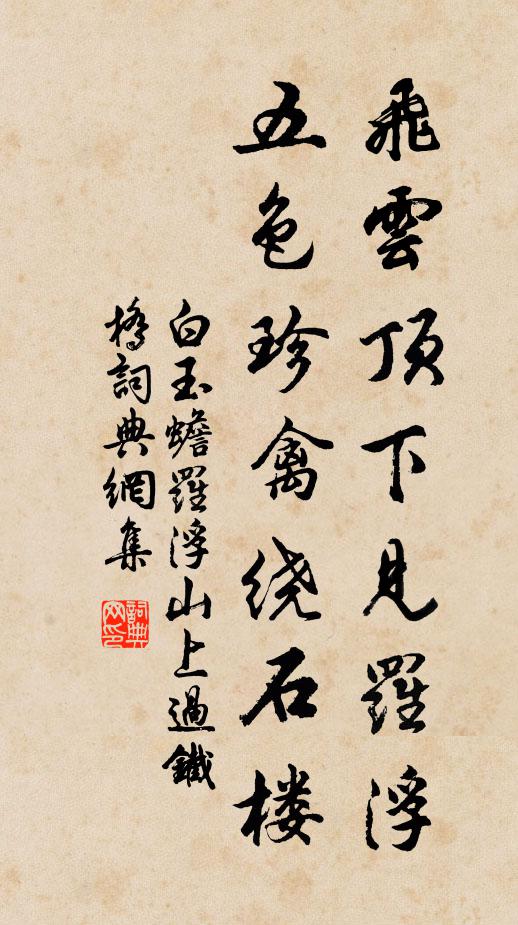 飛雲頂下見羅浮
五色珍禽绕石楼
白玉蟾羅浮山上過鐵
橋詞典網集
詞典网印